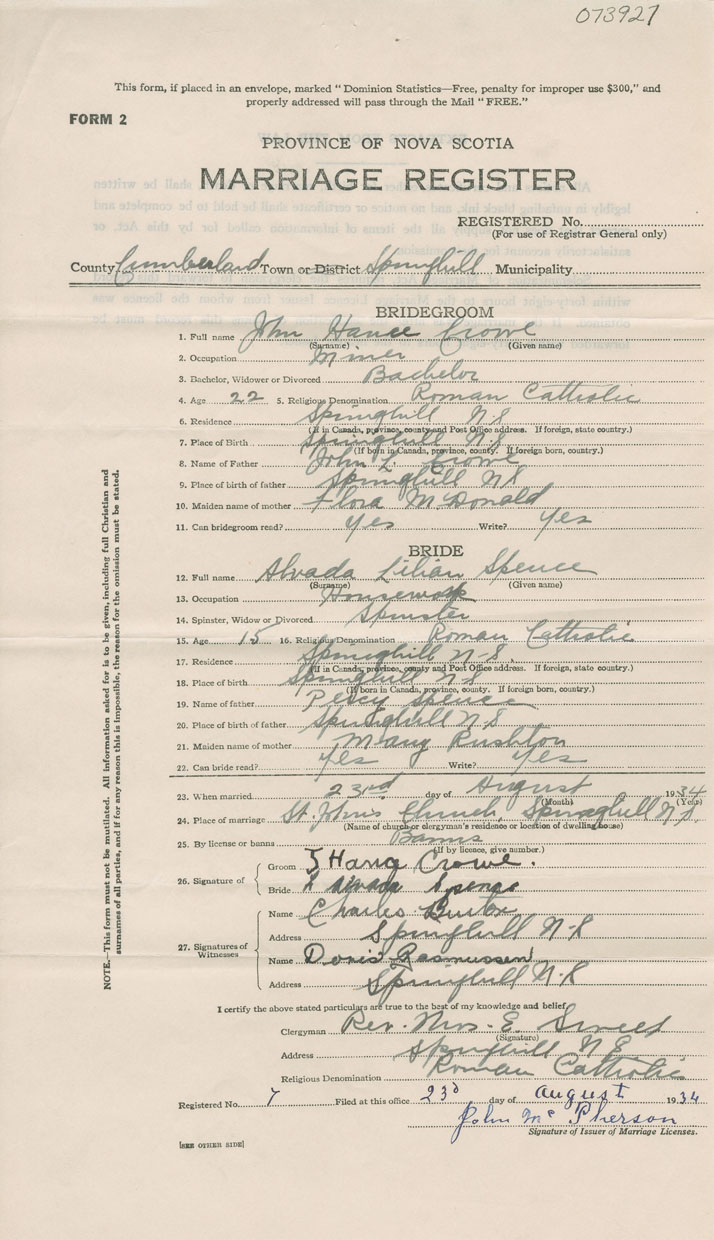 073927
This form, if placed in an envelope, marked "Dominion Statistics—Free, penalty for improper use $300," and
properly addressed will pass through the Mail "FREE."
FORM 2
PROVINCE OF NOVA SCOTIA
MARRIAGE REGISTER
REGISTERED No.
(For use of Registrar General only)
County Cumberland Town or District Springhill Municipality
BRIDEGROOM
1. Full name John Hance Crowe
(Surname) (Given name)
2. Occupation Miner
3. Bachelor, Widower or Divorced Bachelor
4. Age 22 5. Religious Denomination Roman Catholic
6. Residence Springhill N.S
(If in Canada, province, county and Post Office address. If foreign, state country.)
7. Place of Birth Springhill N.S
(If born in Canada, province, county. If foreign born, country.)
8. Name of Father John L. Crowe
9. Place of birth of father Springhill N.S
10. Maiden name of mother Flora McDonald
11. Can bridegroom read? Yes Write? Yes
BRIDE
12. Full name Alvada Lilian Spence
(Surname) (Given name)
13. Occupation Housework
14. Spinster, Widow or Divorced Spinster
15. Age 15 16. Religious Denomination Roman Catholic
17. Residence Springhill N-S
(If in Canada, province, county and Post Office address. If foreign, state country.)
18. Place of birth Springhill N.S
(If born in Canada, province, county. If foreign born, country.)
19. Name of father Percy Spence
20. Place of birth of father Springhill N.S
21. Maiden name of mother Mary Rushton
22. Can bride read? Yes Write? Yes
23. When married 23rd day of August 1934
(Month) (Year)
24. Place of marriage St. John's Church, Springhill N.S.
(Name of church or clergyman's residence or location of dwelling house)
25. By license or banns Banns
(If by licence, give number.)
26. Signature of
Groom J Hance Crowe.
Bride Alvada Spence
27. Signatures of Witnesses
Name Charles
Address Springhill N-S
Name Doris Rasmussen
Address Springhill N-S
I certify the above stated particulars are true to the best of my knowledge and belief
Clergyman Rev.
(Signature)
Address Springhill N S
Religious Denomination Roman Catholic
Registered No. 7 Filed at this office 23d day of August 1934
John McPherson
Signature of Issuer of Marriage Licenses.
[SEE OTHER SIDE]
NOTE.—This form must not be mutilated. All information asked for is to be given, including full Christian and
surnames of all parties, and if for any reason this is impossible, the reason for the omission must be stated.